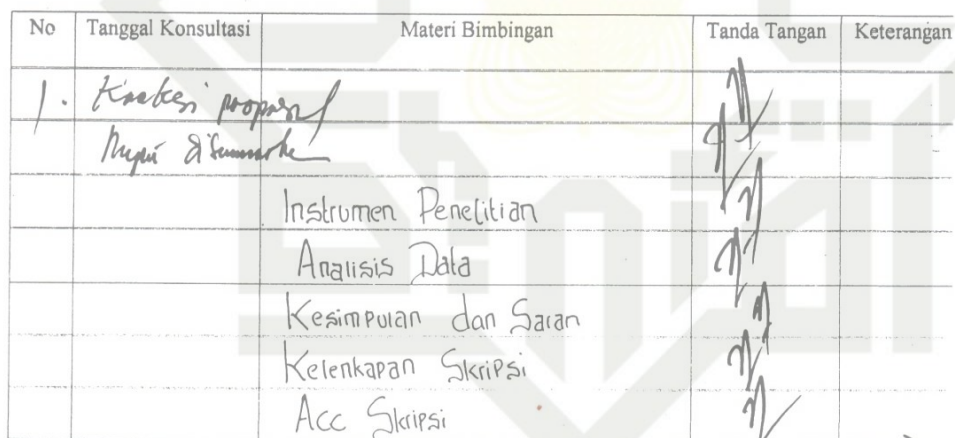 No Tanggal Konsultasi Materi Bimbingan Tanda Tangan Keterangan
1. Koreksi proposal
Instrumen Penelitian
Analisis Data
Kesimpulan dan Saran
Kelenkapan Skripsi
Acc Skripsi